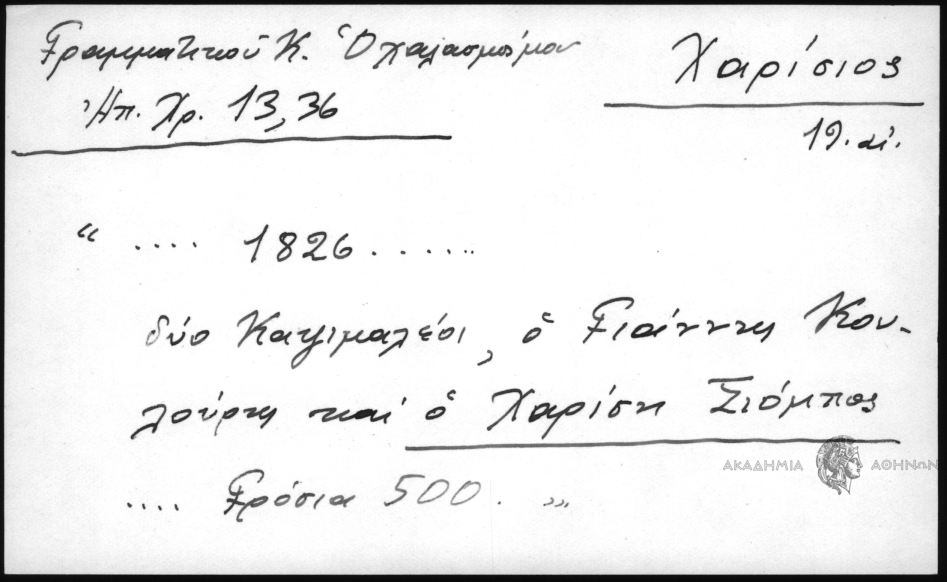 Γραμματικοῦ Κ. Ὁ χαλασμὸς μου
Ἠπ. Χρ. 13, 36
Χαρίσιος
19. αἰ.
“ .... 1826 .......
δύο Καψιμαλέοι, ὁ Γιάννης Κου-
λούρης καὶ ὁ Χαρίση Σιόμπος
.... Γρόσια 500 . „
ΑΚΑΔΗΜΙΑ ΑΘΗΝΩΝ